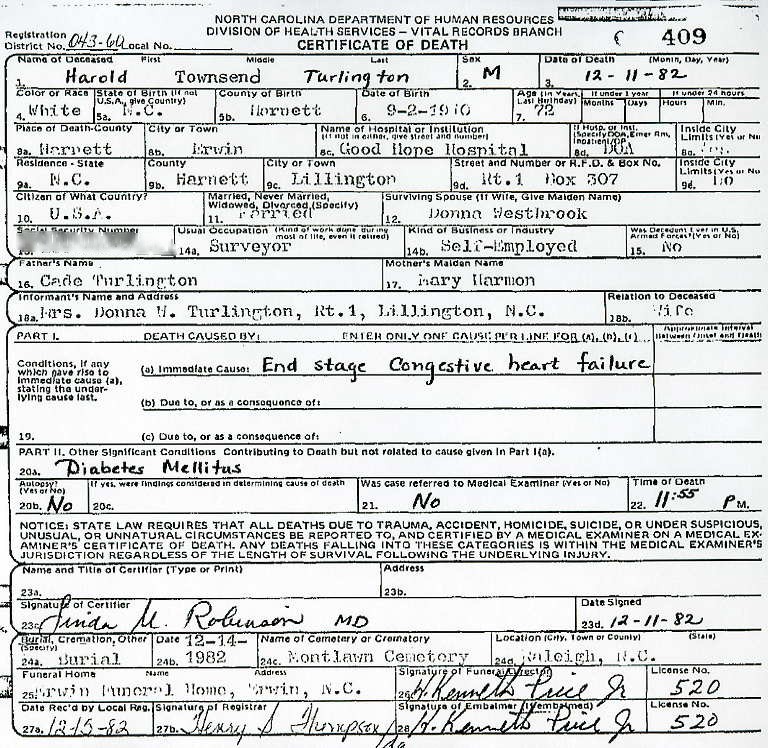 NORTH CAROLINA DEPARTMENT OF HUMAN RESOURCES
DIVISION OF HEALTH SERVICES – VITAL RECORDS BRANCH
CERTIFICATE OF DEATH
409
Registration District No. 043-60 Local No.
Name of Deceased First Middle Last Sex Date of Death (Month, Day, Year)
1. Harold Townsend Turlington 2. M 3. 12-11-82
Color or Race State of Birth (If not U.S.A., give Country) County of Birth Date of Birth Age (In Years, Last Birthday) If under 1 year Months Days If under 24 hours Hours Min.
4. White 5a. N.C. 5b. Harnett 6. 9-2-1910 7. 72
Place of Death-County City or Town Name of Hospital or Institution (If not in either, give street and number) If Hosp. or Inst. (Specify DOA, Emer Rm, Inpatient/OP Inside City Limits (Yes or No
8a. Harnett 8b. Erwin 8c. Good Hope Hospital 8d. DOA 8e.
Residence - State County City or Town Street and Number or R.F.D. & Box No. Inside City Limits (Yes or No
9a. N.C. 9b. Harnett 9c. Lillington 9d. Rt.1 Box 307 9e. No
Citizen of What Country? Married, Never Married, Widowed, Divorced (Specify) Surviving Spouse (If Wife, Give Maiden Name)
10. U.S.A. 11. Married 12. Donna Westbrook
Social Security Number Usual Occupation (Kind of work done during most of life, even if retired) Kind of Business or Industry Was Decedent Ever in U.S. Armed Forces? (Yes or No)
14a. Surveyor 14b. Self-Employed 15. No
Father's Name Mother's Maiden Name
16. Cade Turlington 17. Mary Harmon
Informant's Name and Address Relation to Deceased
18a. Mrs. Donna W. Turlington, Rt.1, Lillington, N.C. 18b. Wife
PART I. DEATH CAUSED BY: ENTER ONLY ONE CAUSE PER LINE FOR (a), (b), (c) Approximate Interval Between Onset and Death
Conditions, if any which gave rise to immediate cause (a), stating the underlying cause last.
(a) Immediate Cause: End stage Congestive heart failure
(b) Due to, or as a consequence of:
19. (c) Due to, or as a consequence of:
PART II. Other Significant Conditions Contributing to Death but not related to cause given in Part I(a).
20a. Diabetes Mellitus
Autopsy? (Yes or No) If yes, were findings considered in determining cause of death Was case referred to Medical Examiner (Yes or No) Time of Death
20b. No 20c. 21. No 22. 11:55 P M.
NOTICE: STATE LAW REQUIRES THAT ALL DEATHS DUE TO TRAUMA, ACCIDENT, HOMICIDE, SUICIDE, OR UNDER SUSPICIOUS,
UNUSUAL, OR UNNATURAL CIRCUMSTANCES BE REPORTED TO, AND CERTIFIED BY A MEDICAL EXAMINER ON A MEDICAL EX-
AMINER'S CERTIFICATE OF DEATH. ANY DEATHS FALLING INTO THESE CATEGORIES IS WITHIN THE MEDICAL EXAMINER'S
JURISDICTION REGARDLESS OF THE LENGTH OF SURVIVAL FOLLOWING THE UNDERLYING INJURY.
Name and Title of Certifier (Type or Print) Address
23a. 23b.
Signature of Certifier Date Signed
23c. Linda M. Robinson MD 23d. 12-11-82
Burial, Cremation, Other (Specify) Date 12-14- Name of Cemetery or Crematory Location (City, Town or County) (State)
24a. Burial 24b. 1982 24c. Montlawn Cemetery 24d. Raleigh, N.C.
Funeral Home Name Address Signature of Funeral Director License No.
25. Erwin Funeral Home, Erwin, N.C. 26. H. Kenneth Price Jr 520
Date Rec'd by Local Reg. Signature of Registrar Signature of Embalmer (If embalmed) License No.
27a. 12-15-82 27b. Henry S Thompson 28. H. Kenneth Price Jr 520